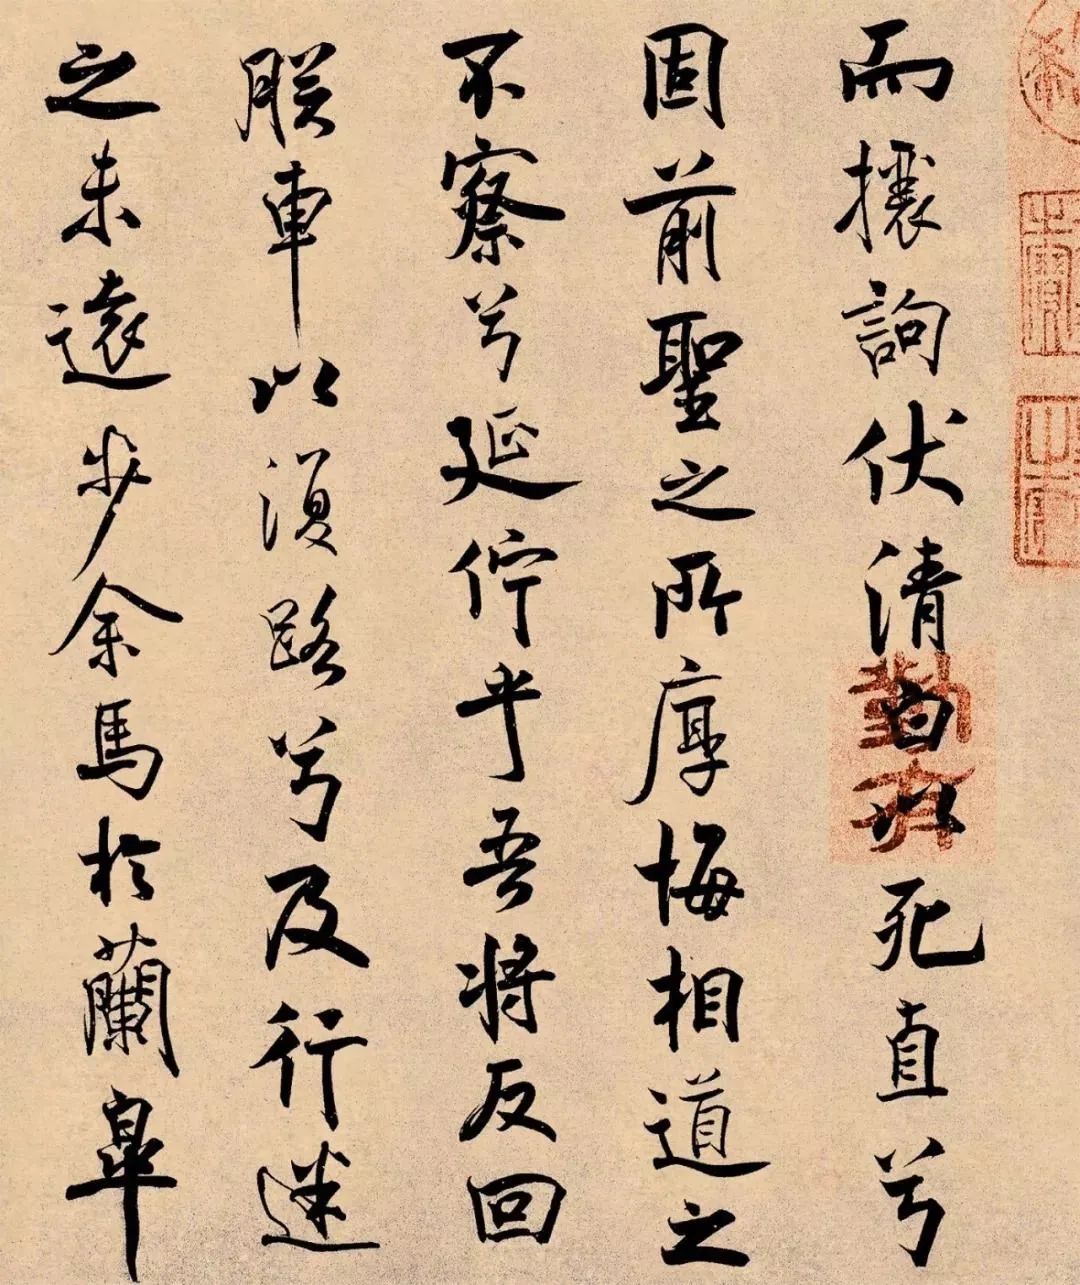 而攘詢伏清白以死直兮
固前聖之所厚悔相道之
不察兮延佇乎吾將反回
朕車以須路兮及行迷
之未遠步余馬於蘭皐